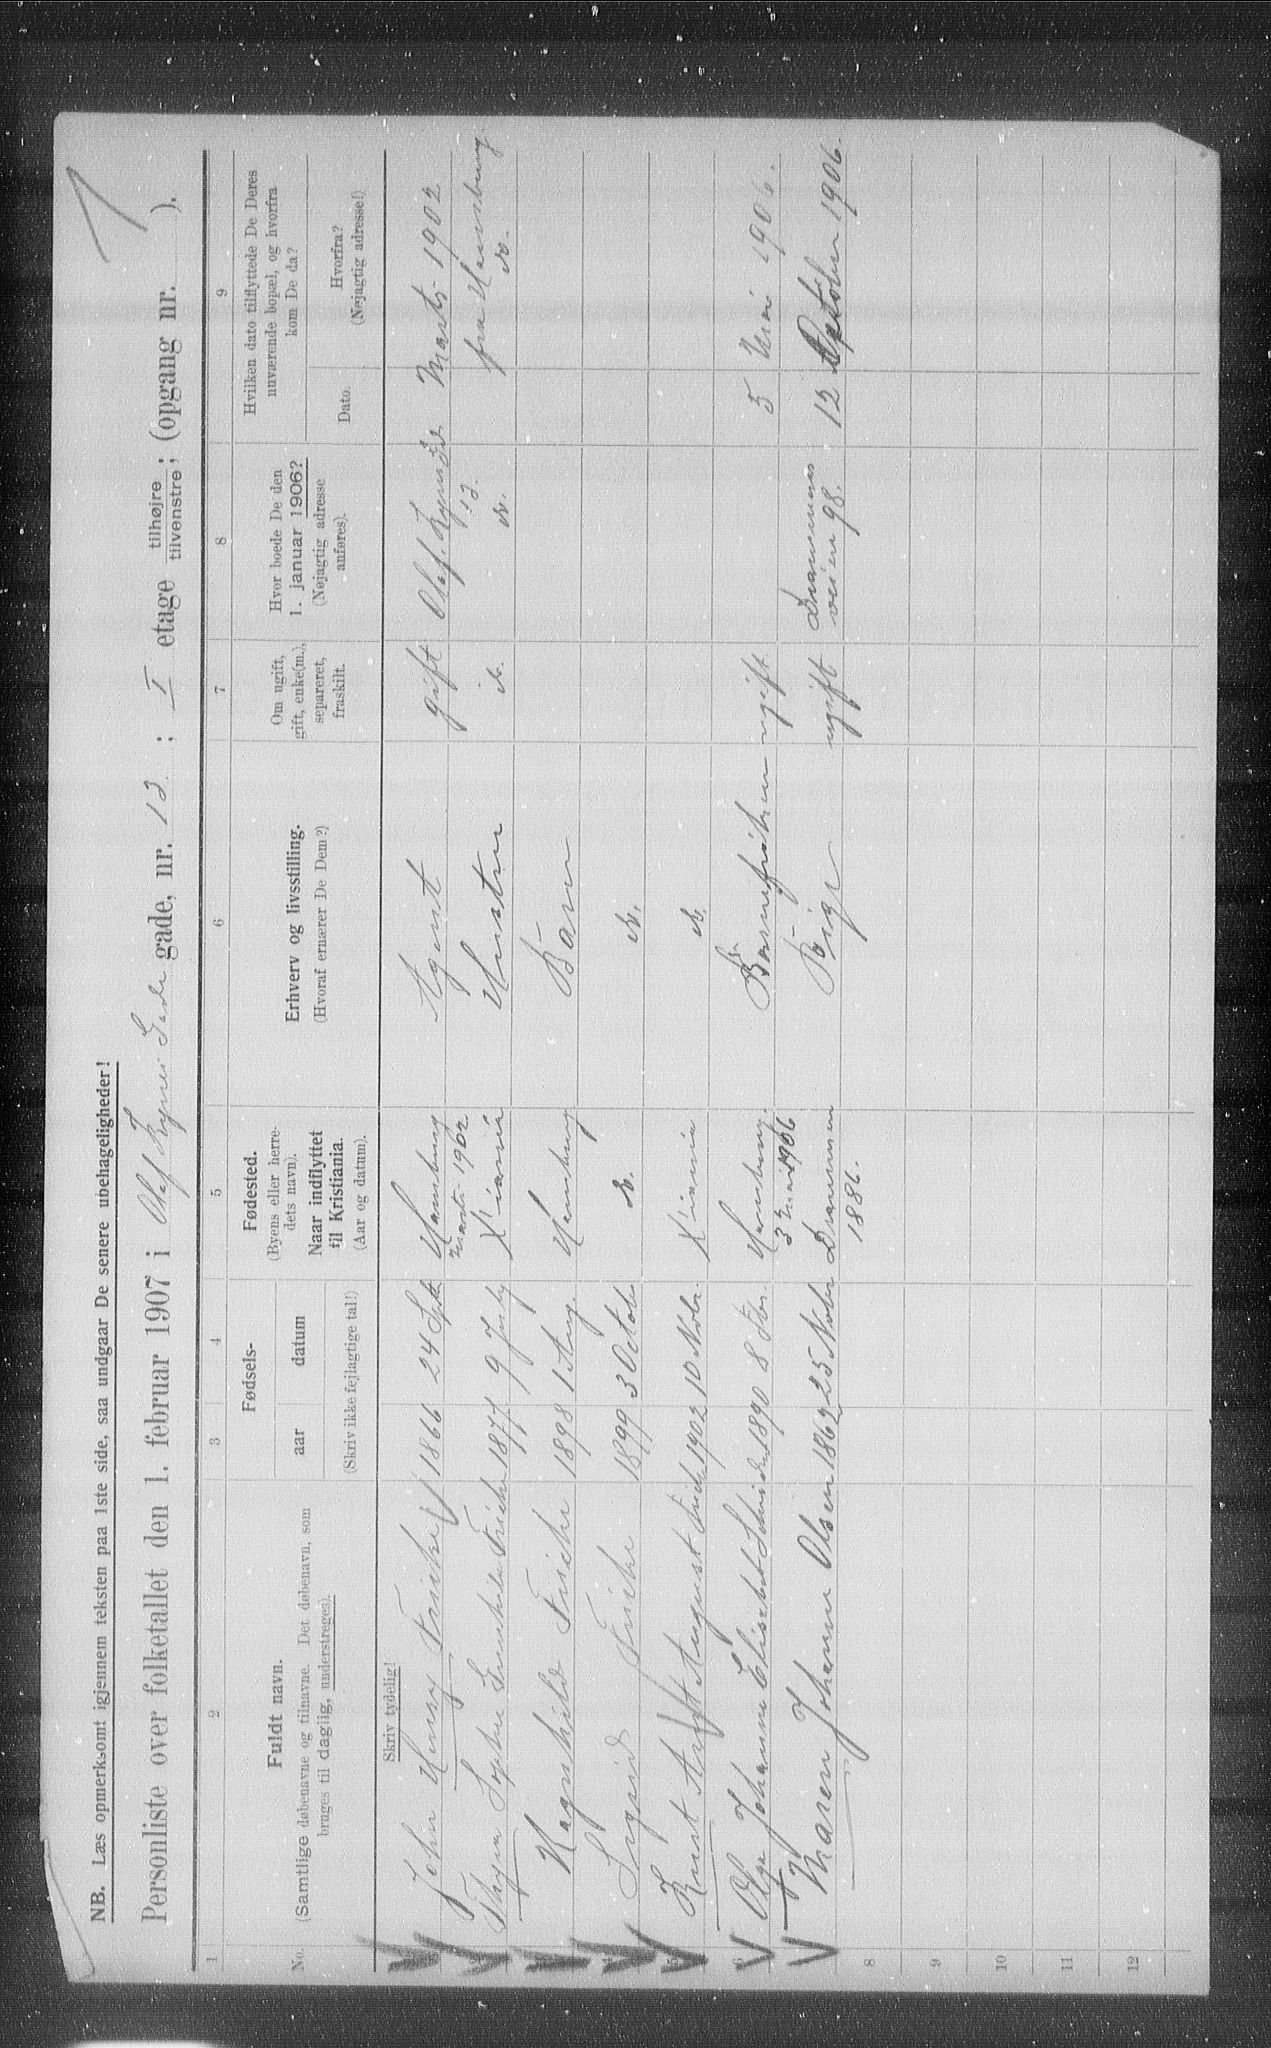 NB. Læs opmerksomt igjennem teksten paa 1ste side, saa undgaar De senere ubehageligheder!
Personliste over folketallet den 1. februar 1907 i Olaf Ryes gade, nr. 13 ; I etage tilhøjre tilvenstre ; (opgang nr. ).
1 2 3 4 5 6 7 8 9
No.
Fuldt navn.
(Samtlige døbenavne og tilnavne. Det døbenavn, som
bruges til daglig, understreges).
Fødsels-
aar datum
(Skriv ikke fejlagtige tal!)
Fødested.
(Byens eller herre-
dets navn).
Naar indflyttet
til Kristiania.
(Aar og datum).
Erhverv og livsstilling.
(Hvoraf ernærer De Dem?)
Om ugift,
gift, enke(m.),
separeret,
fraskilt.
Hvor boede De den
1. januar 1906?
(Nøjagtig adresse
anføres).
Hvilken dato tilflyttede De Deres
nuværende bopæl, og hvorfra
kom De da?
Dato.
Hvorfra?
(Nøjagtig adresse!)
Skriv tydelig!
John Henry Fricke 1866 24 Sept Hamburg Marts 1902 Agent gift Olaf Ryesgd 13. Marts 1902
Thyra Sophie Fricke 1877 9 July K'iania Hustru do. do. fra Hamburg do.
Magnhild Fricke 1898 1 Aug. Hamburg Barn
Sigrid Fricke 1899 3 Octob do. do.
Knut August Fricke 1902 10 Novbr. K'iania do.
Olga Johanne Elisabet 1890 8 Hamburg. 3 mai 1906 Barnefrøken ugift 5 mai 1906.
Maren Johanne Olsen 1862 25 Novbr Drammen 1886. Pige ugift Drammens veien 98. 12 October 1906.
8
9
10
11
12